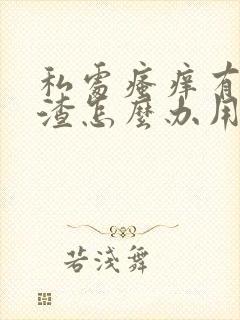 私處瘙癢有
渣怎麼办用
若淺舞